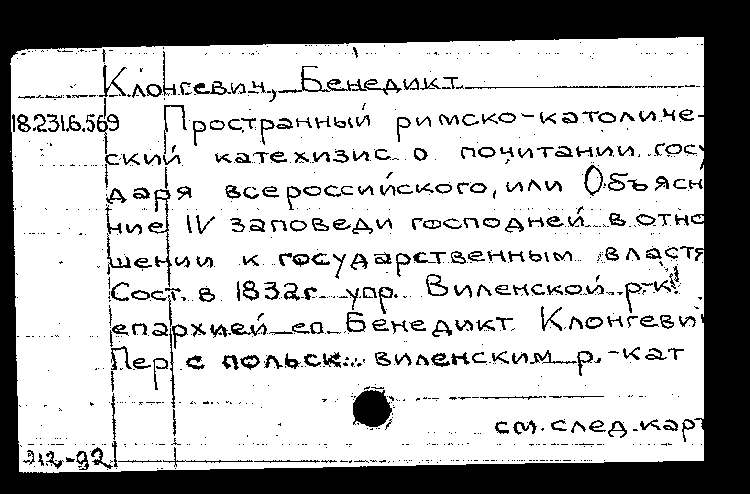 Клонгевич, Бенедикт
18.231.6.569 Пространный римско-католиче-
ский катехизис о почитании госу
даря всероссийского, или Объясн
ние IV заповеди господней в отно
шении к государственным властя
Сост. в 1832г упр. Виленской р-к.
епархией еп Бенедикт Клонгеви
Пер с польск... виленским р.-кат
см.след.карт
212-92